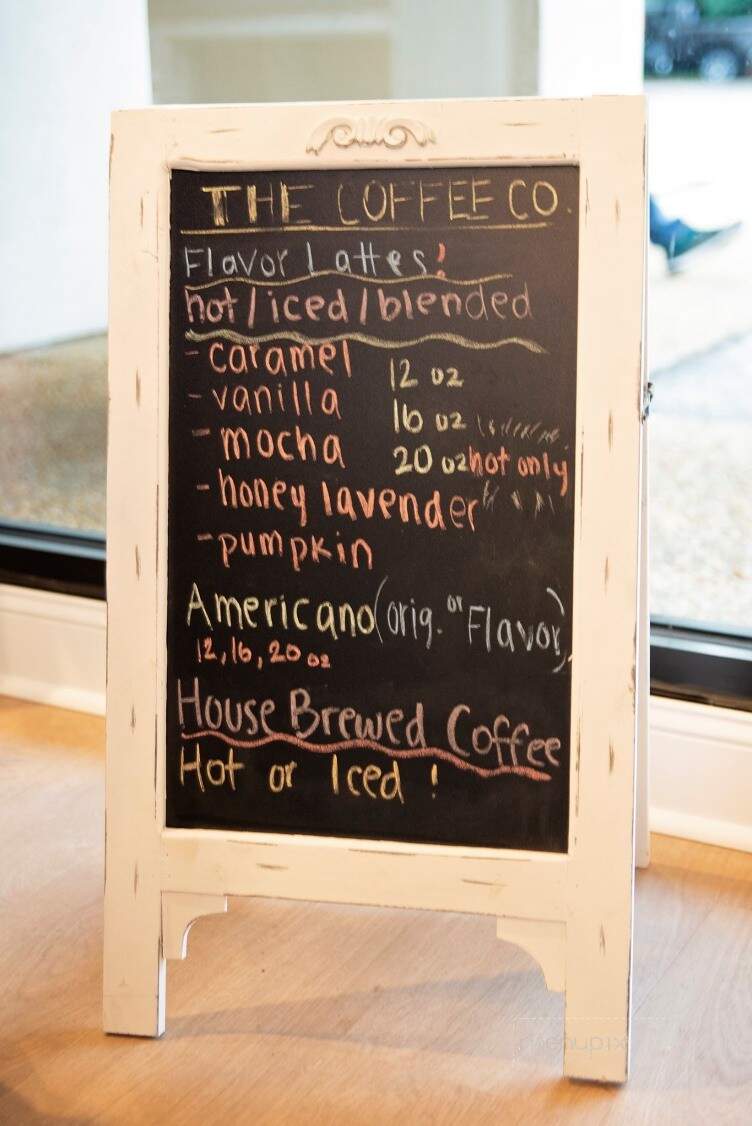 THE COFFEE CO.
Flavor Lattes!
hot/iced/blended
- caramel
12 oz
- vanilla
16 oz
- mocha
20 oz hot only
- honey lavender
- pumpkin
Americano (orig. or Flavor)
12, 16, 20 oz
House Brewed Coffee
Hot or Iced !
menupix